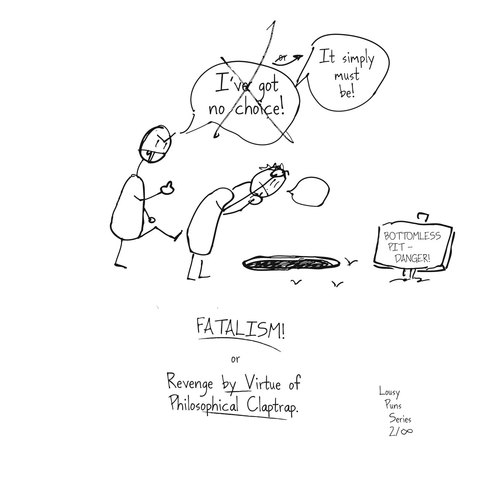 I've got
no choice!
or
It simply
must
be!
BOTTOMLESS
PIT -
DANGER!
FATALISM!
or
Revenge by Virtue of
Philosophical Claptrap.
Lousy
Puns
Series
2/∞